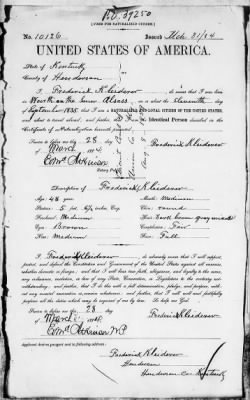 No 39250
[FORM FOR NATURALIZED CITIZEN.]
No. 10126 Issued Mch. 31/84
UNITED STATES OF AMERICA.
State of Kentucky
County of Henderson
I, Frederick Kleiderer, do swear that I was born
in on the Alsace, on or about the eleventh day
of September, 1835; that I am a NATURALIZED CITIZEN OF THE UNITED STATES
and about to travel abroad, and further, that I am the Identical Person described in the
Certificate of Naturalization herewith presented.
Sworn to before me this 28 day Frederick Kleiderer
of March, 1884
Notary Public
Description of Frederick Kleiderer
Age: 48 years Mouth: Medium
Stature: 5 feet inches Eng. Chin: round
Forehead: Medium Hair: Dark brown gray mixed
Eyes: Brown Complexion: Fair
Nose: Medium Face: Full
I, Frederick Kleiderer, do solemnly swear that I will support,
protect, and defend the Constitution and Government of the United States against all enemies,
whether domestic or foreign; and that I will bear true faith, allegiance, and loyalty to the same,
any ordinance, resolution, or law of any State, Convention, or Legislature to the contrary notwithstanding;
and further, that I do this with a full determination, pledge, and purpose, without
any mental reservation or evasion whatsoever; and further, that I will well and faithfully
perform all the duties which may be required of me by law. So help me God.
Sworn to before me this 28 day Frederick Kleiderer
of March, 1884
Applicant desires passport sent to following address:
Frederick Kleiderer
Henderson
Henderson Co. Kentucky